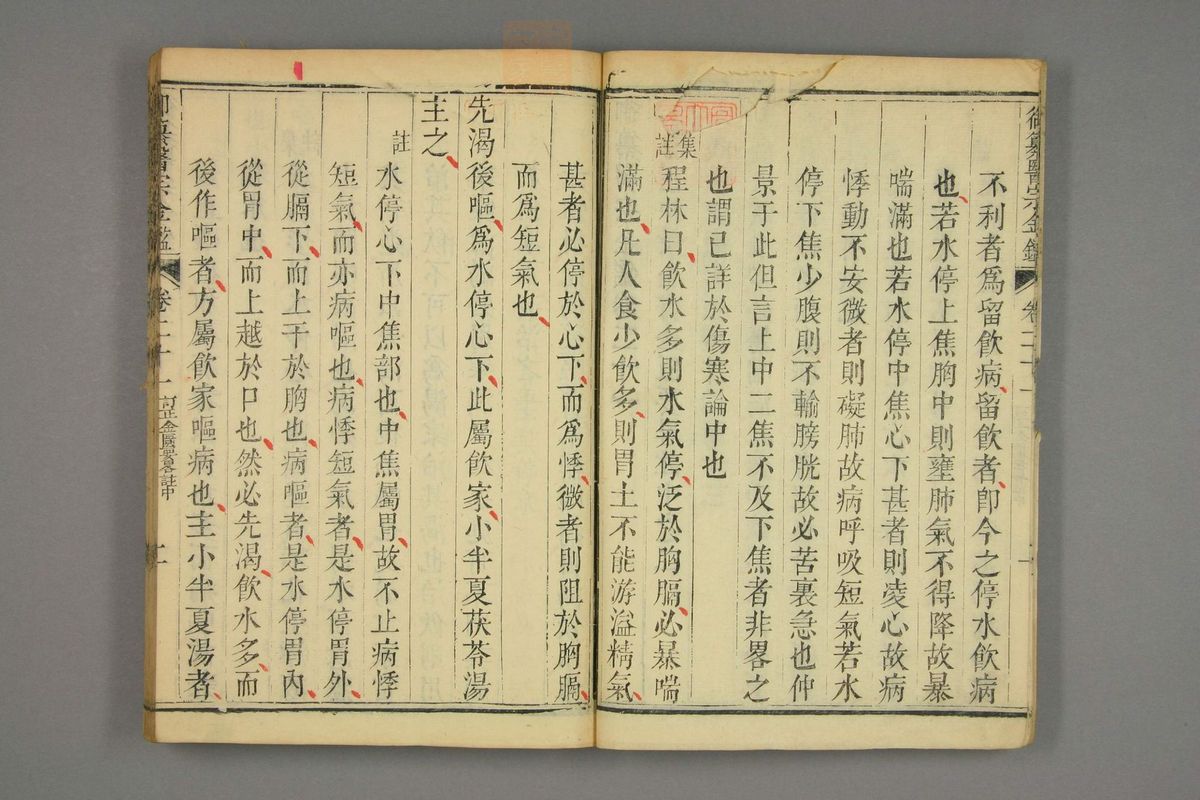 御纂醫宗金鑑 卷二十一
不利者爲留飲病留飲者卽今之停水飲病
也若水停上焦胸中則壅肺氣不得降故暴
喘滿也若水停中焦心下甚者則凌心故病
悸動不安微者則礙肺故病呼吸短氣若水
停下焦少腹則不輸膀胱故必苦裏急也仲
景于此但言上中二焦不及下焦者非畧之
也謂已詳於傷寒論中也
集註程林曰飲水多則水氣停泛於胸膈必暴喘
滿也凡人食少飲多則胃土不能游溢精氣
甚者必停於心下而爲悸微者則阻於胸膈
而爲短氣也
先渴後嘔爲水停心下此屬飲家小半夏茯苓湯
主之
註水停心下中焦部也中焦屬胃故不止病悸
短氣而亦病嘔也病悸短氣者是水停胃外
從膈下而上干於胸也病嘔者是水停胃內
從胃中而上越於口也然必先渴飲水多而
後作嘔者方屬飲家嘔病也主小半夏湯者
御纂醫宗金鑑 卷二十一 訂正金匱要畧註中 二